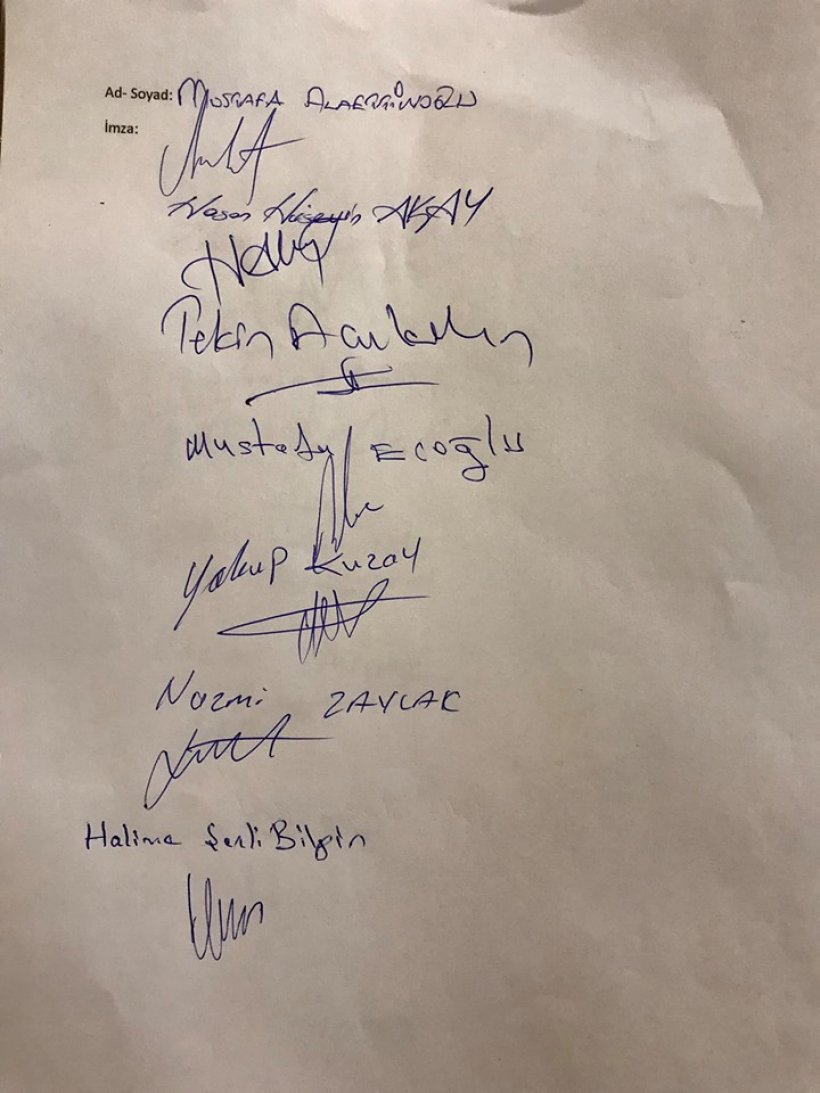 Ad- Soyad: MUSTAFA ALAETTİNOĞLU
İmza:
Hasan Hüseyin AKÇAY
Tekin
Mustafa Ecoğlu
Yakup Kuzay
Nazmi ZAYLAK
Halime Şenli Bilgin